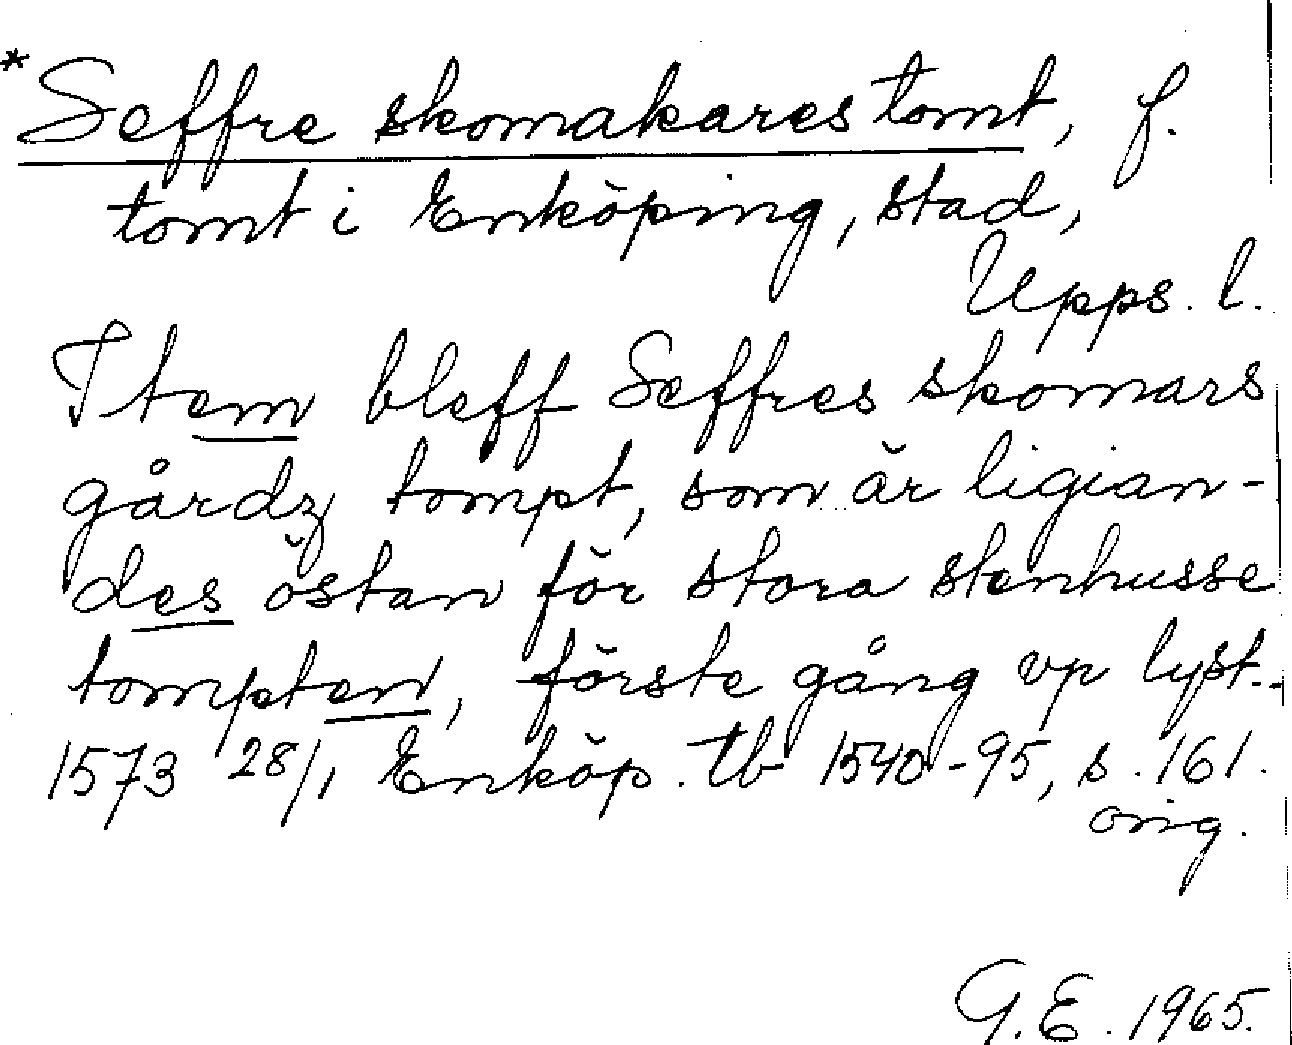 *Seffre skomakares tomt, f.
tomt i Enköping, stad,
Upps. l.
Item bleff Seffres skomars
gårdz tompt, som är ligian-
des östan för stora stenhusse
tompten, förste gång vp lyst.
1573 28/1 Enköp. tb 1540-95, s. 161.
orig.
G.E. 1965.